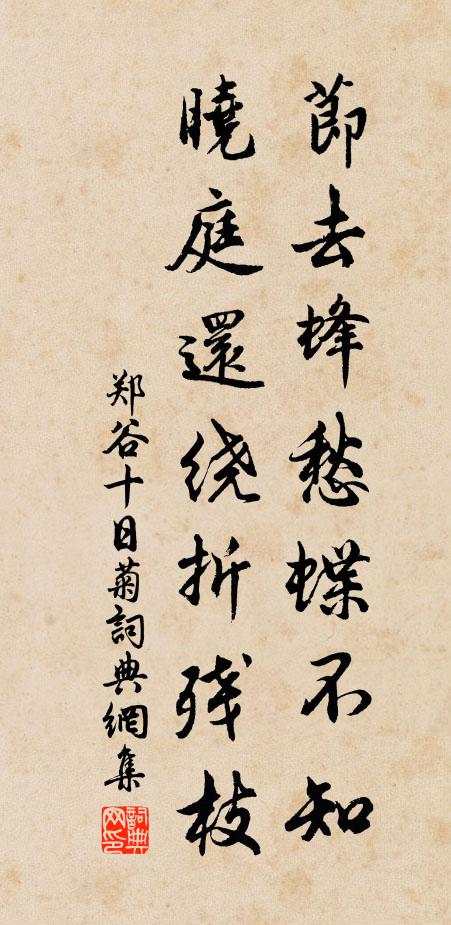 節去蜂愁蝶不知
曉庭還绕折残枝
郑谷十日菊詞典網集
詞典网印